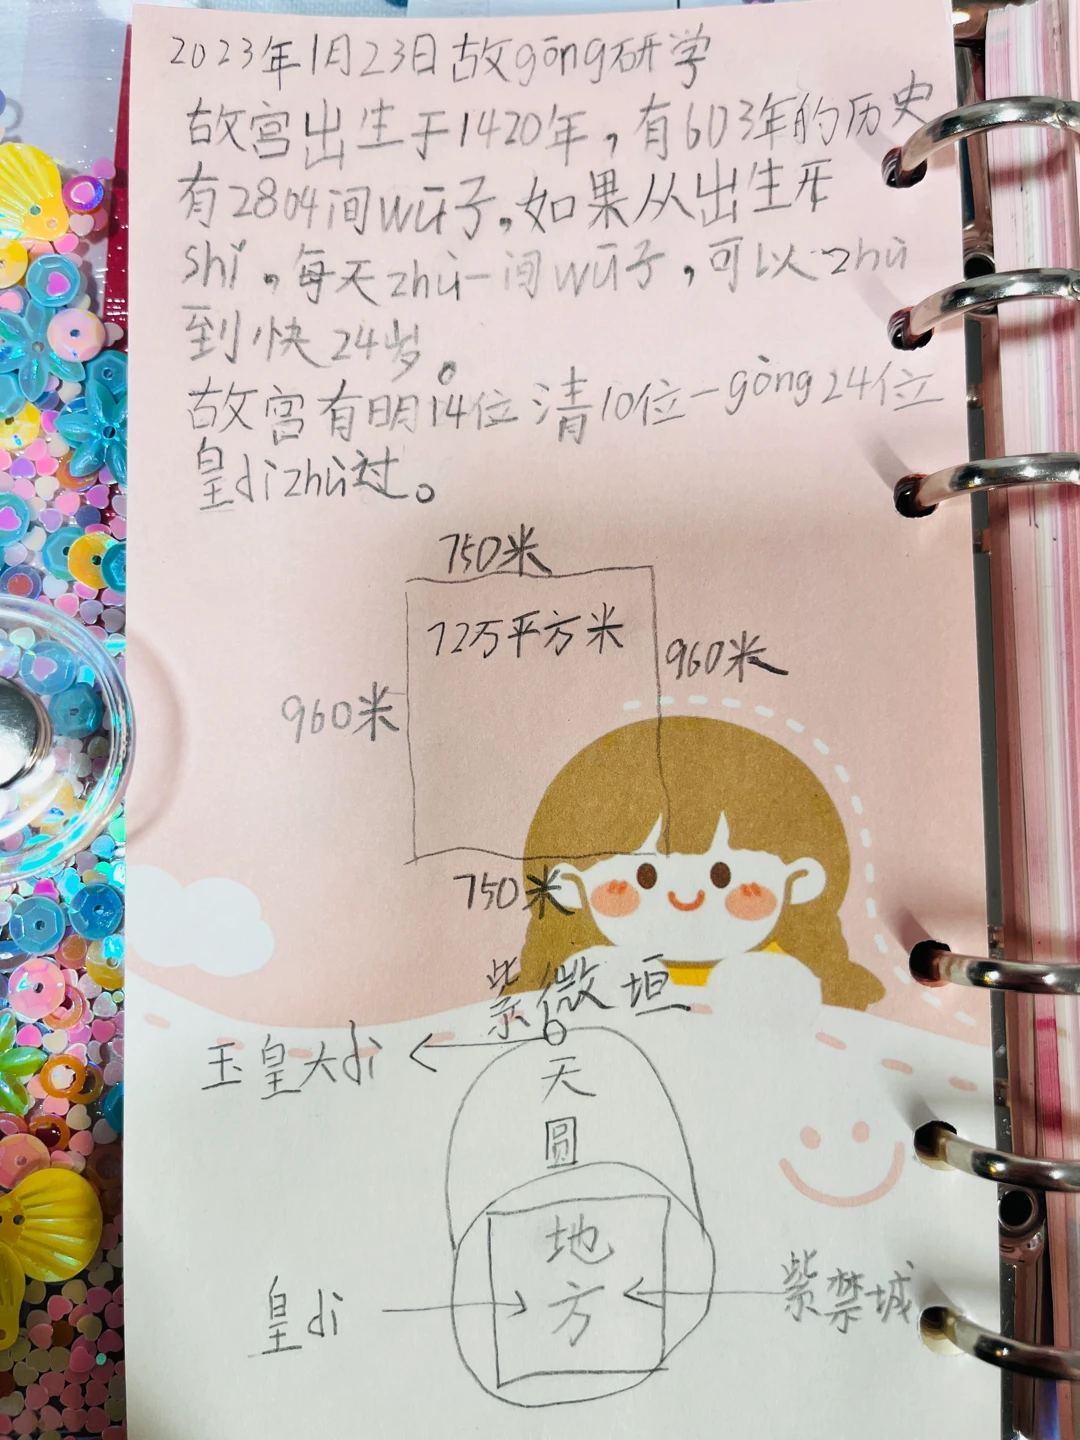 2023年1月23日故gōng研学
故宫出生于1420年,有603年的历史
有2804间wū子,如果从出生开
shǐ,每天zhù一间wū子,可以zhù
到快24岁。
故宫有明14位清10位一gòng24位
皇dì zhù过。
750米
72万平方米
960米
960米
750米
紫微垣
玉皇大dì
天
圆
地
方
皇dì
紫禁城